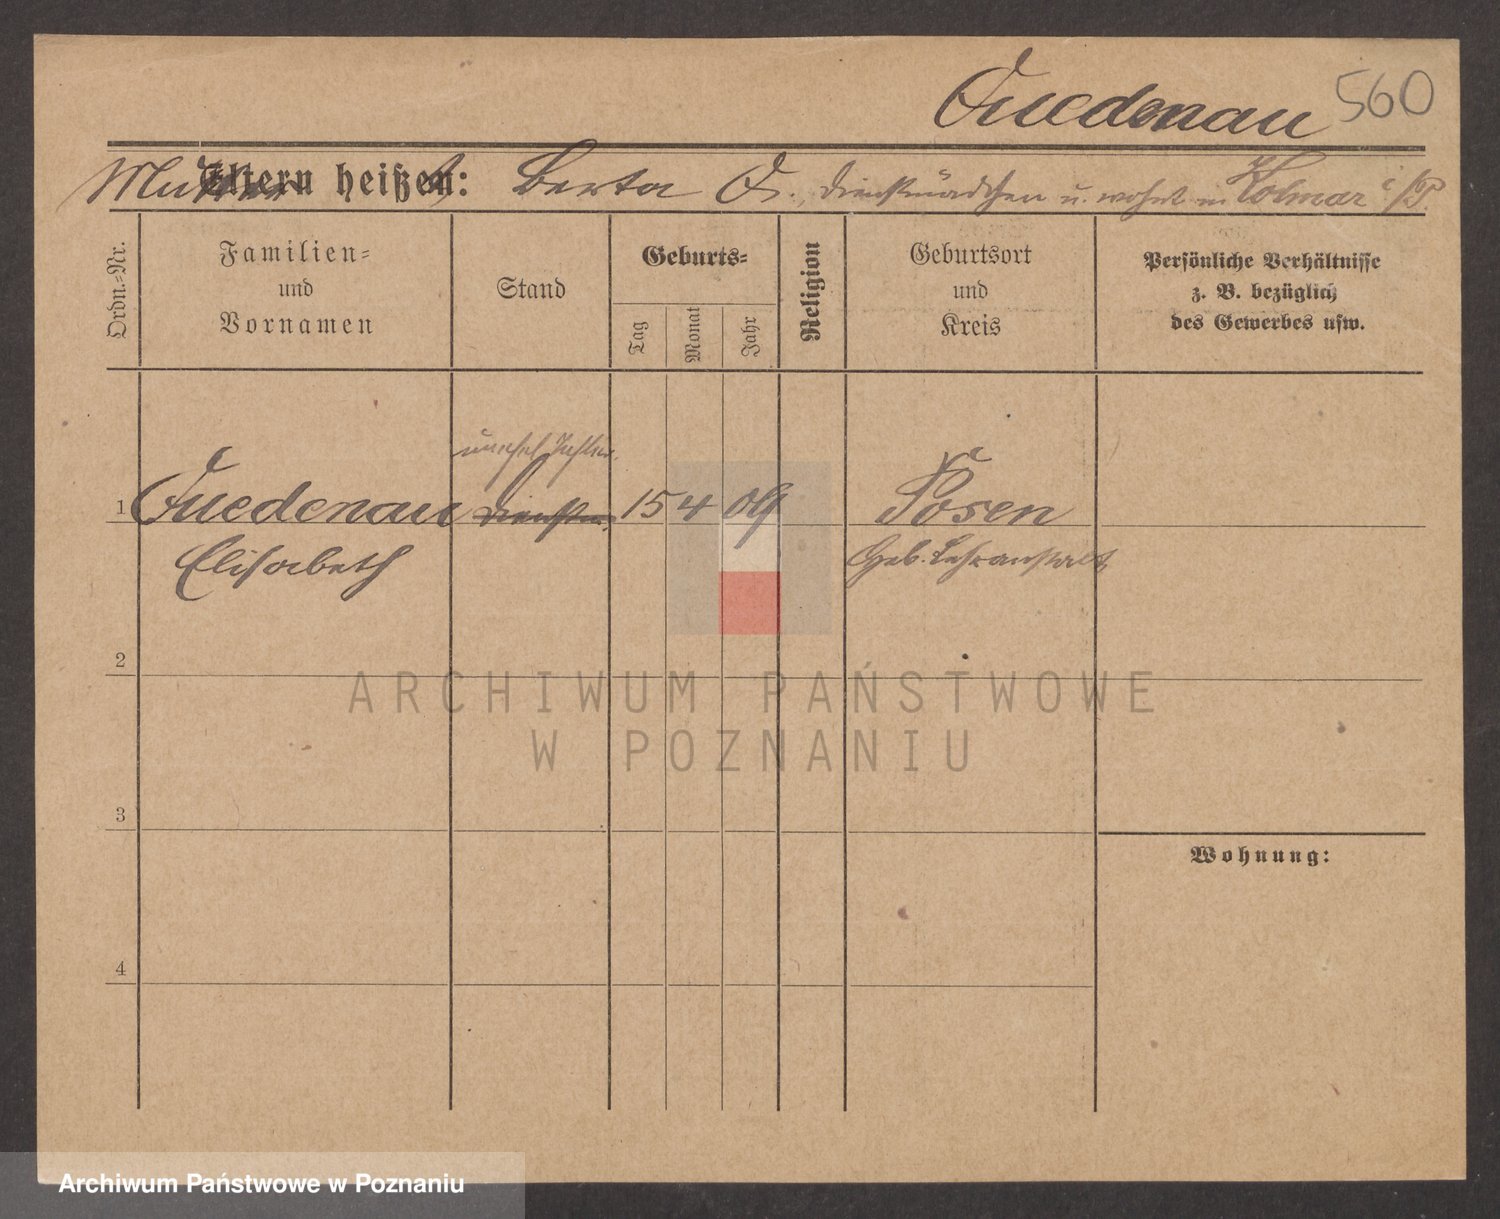 Quedenau 560
Mutter Eltern heißen: Berta Q., Dienstmädchen u. wohnt in Kolmar i/P.
Ordn.=Nr.
Familien=
und
Vornamen
Stand
Geburts=
Tag
Monat
Jahr
Religion
Geburtsort
und
Kreis
Persönliche Verhältnisse
z. B. bezüglich
des Gewerbes usw.
unehel. Tochter
1 Quedenau 15 4 09 Posen
Elisabeth Heb. Lehranstalt
2
3
4
Wohnung:
ARCHIWUM PAŃSTWOWE
W POZNANIU
Archiwum Państwowe w Poznaniu